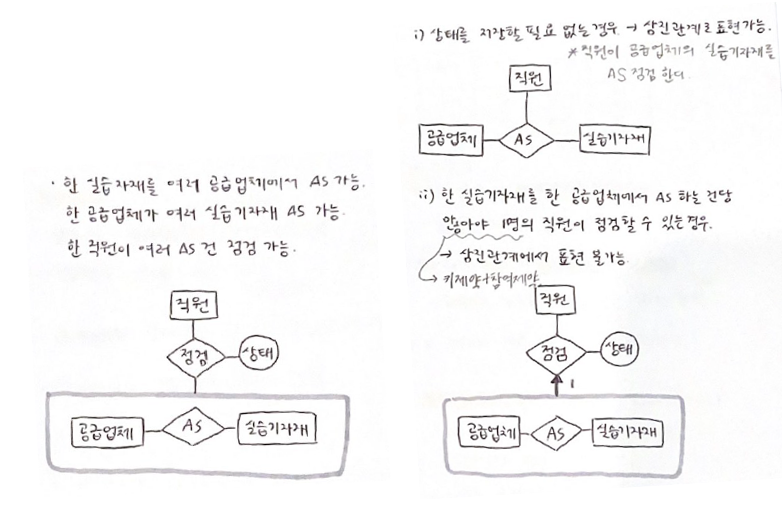 · 한 실습자재를 여러 공급업체에서 AS 가능.
한 공급업체가 여러 실습기자재 AS 가능.
한 직원이 여러 AS 건 점검 가능.
직원
점검
상태
공급업체
AS
실습기자재
i) 상태를 저장할 필요 없는 경우 → 삼진관계로 표현가능.
*직원이 공급업체의 실습기자재를
AS 점검 한다.
직원
공급업체
AS
실습기자재
ii) 한 실습기자재를 한 공급업체에서 AS 하는 건당
많아야 1명의 직원이 점검할 수 있는 경우.
→ 삼진관계에서 표현 불가능.
→ 키제약+참여제약
직원
점검
상태
1
공급업체
AS
실습기자재